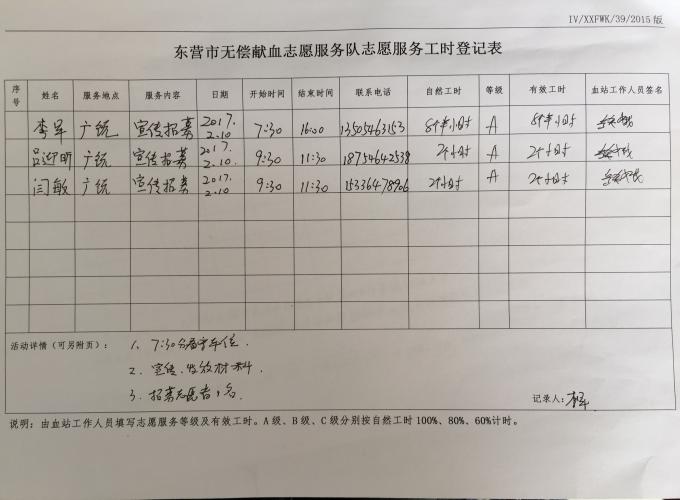 IV/XXFWK/39/2015版
东营市无偿献血志愿服务队志愿服务工时登记表
序号 姓名 服务地点 服务内容 日期 开始时间 结束时间 联系电话 自然工时 等级 有效工时 血站工作人员签名
李军 广饶 宣传招募 2017.2.10 7:30 16:00 13505463153 8个半小时 A 8个半小时
吕迎昕 广饶 宣传招募 2017.2.10. 9:30 11:30 18754642538 2个小时 A 2个小时
闫敏 广饶 宣传招募 2017.2.10 9:30 11:30 15336478906 2个小时 A 2个小时
活动详情(可另附页): 1、7:30分看守车位.
2、宣传、发放材料.
3、招募志愿者1名.
记录人:
说明:由血站工作人员填写志愿服务等级及有效工时。A级、B级、C级分别按自然工时100%、80%、60%计时。